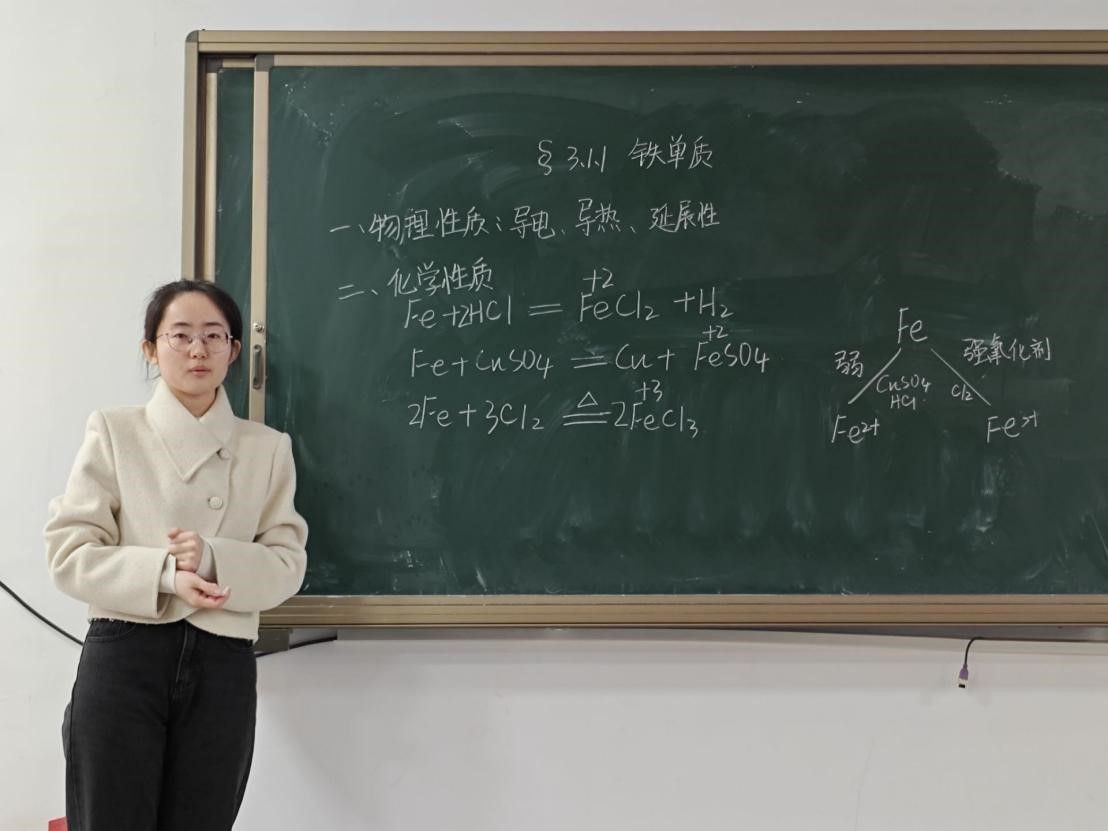 § 3.1.1 铁单质
一、物理性质：导电、导热、延展性
二、化学性质
+2
Fe+2HCl = FeCl₂ +H₂
+2
Fe+CuSO₄ = Cu+ FeSO₄
+3
2Fe+3Cl₂ ≜ 2FeCl₃
Fe
弱 强氧化剂
CuSO₄ Cl₂
HCl
Fe²⁺ Fe³⁺